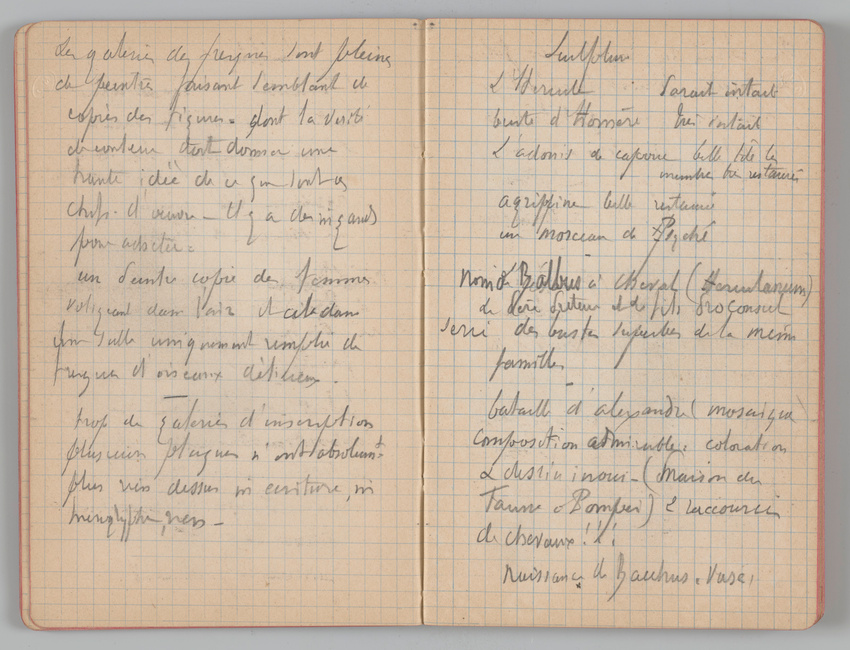 Les galeries de fresques sont pleines
de peintres faisant semblant de
copier des figures. dont la vérité
de couleur doit donner une
haute idée de ce que sont ces
chefs d'œuvre - Il y a des nigauds
pour acheter.
un peintre copie des femmes
voltigeant dans l'air et cela dans
une salle uniquement remplie de
fresques d'oiseaux délicieux.
trop de galeries d'inscription
plusieurs plaques n'ont absolumt
plus rien dessus ni écriture, ni
hieroglyphe, rien -
Sculpture
L'Hercule parait intact
buste d'Homère très intact
L'adonis de capoue belle tête les
membres très restaurés
agrippine belle restaurée
un morceau de Psyché
Balbus à cheval (Herculanum)
Le père préteur et le fils proconsul
série des bustes superbes de la même
famille
bataille d'alexandre (mosaïque
composition admirable, coloration
& dessin inouï - (Maison du
Faune Pompei) & raccourcis
de chevaux!!!
Naissance de Bacchus. Vase.